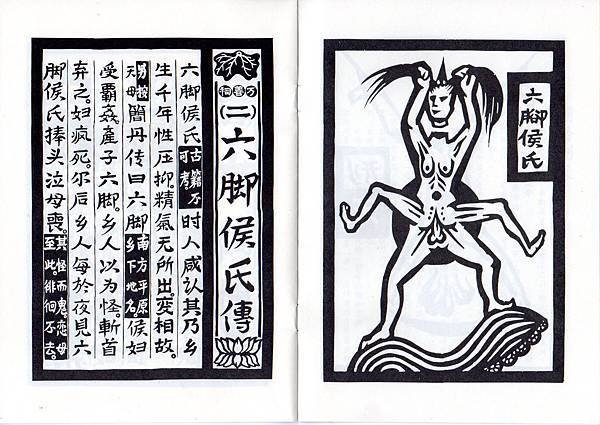 万喜祠
(二)六脚侯氏傳
六脚侯氏古籍万可考时人咸认其乃乡
生千年性压抑。精氣无所出。变相故。
另按母簡丹传曰六脚南方平原乡下地名。侯妇
受霸姦產子六脚。乡人以为怪。斬首
弃之。妇疯死。尔后乡人每於夜見六
脚侯氏捧头泣母喪。其怪而鬼。恋母至此。徘徊不去。
六腳侯氏